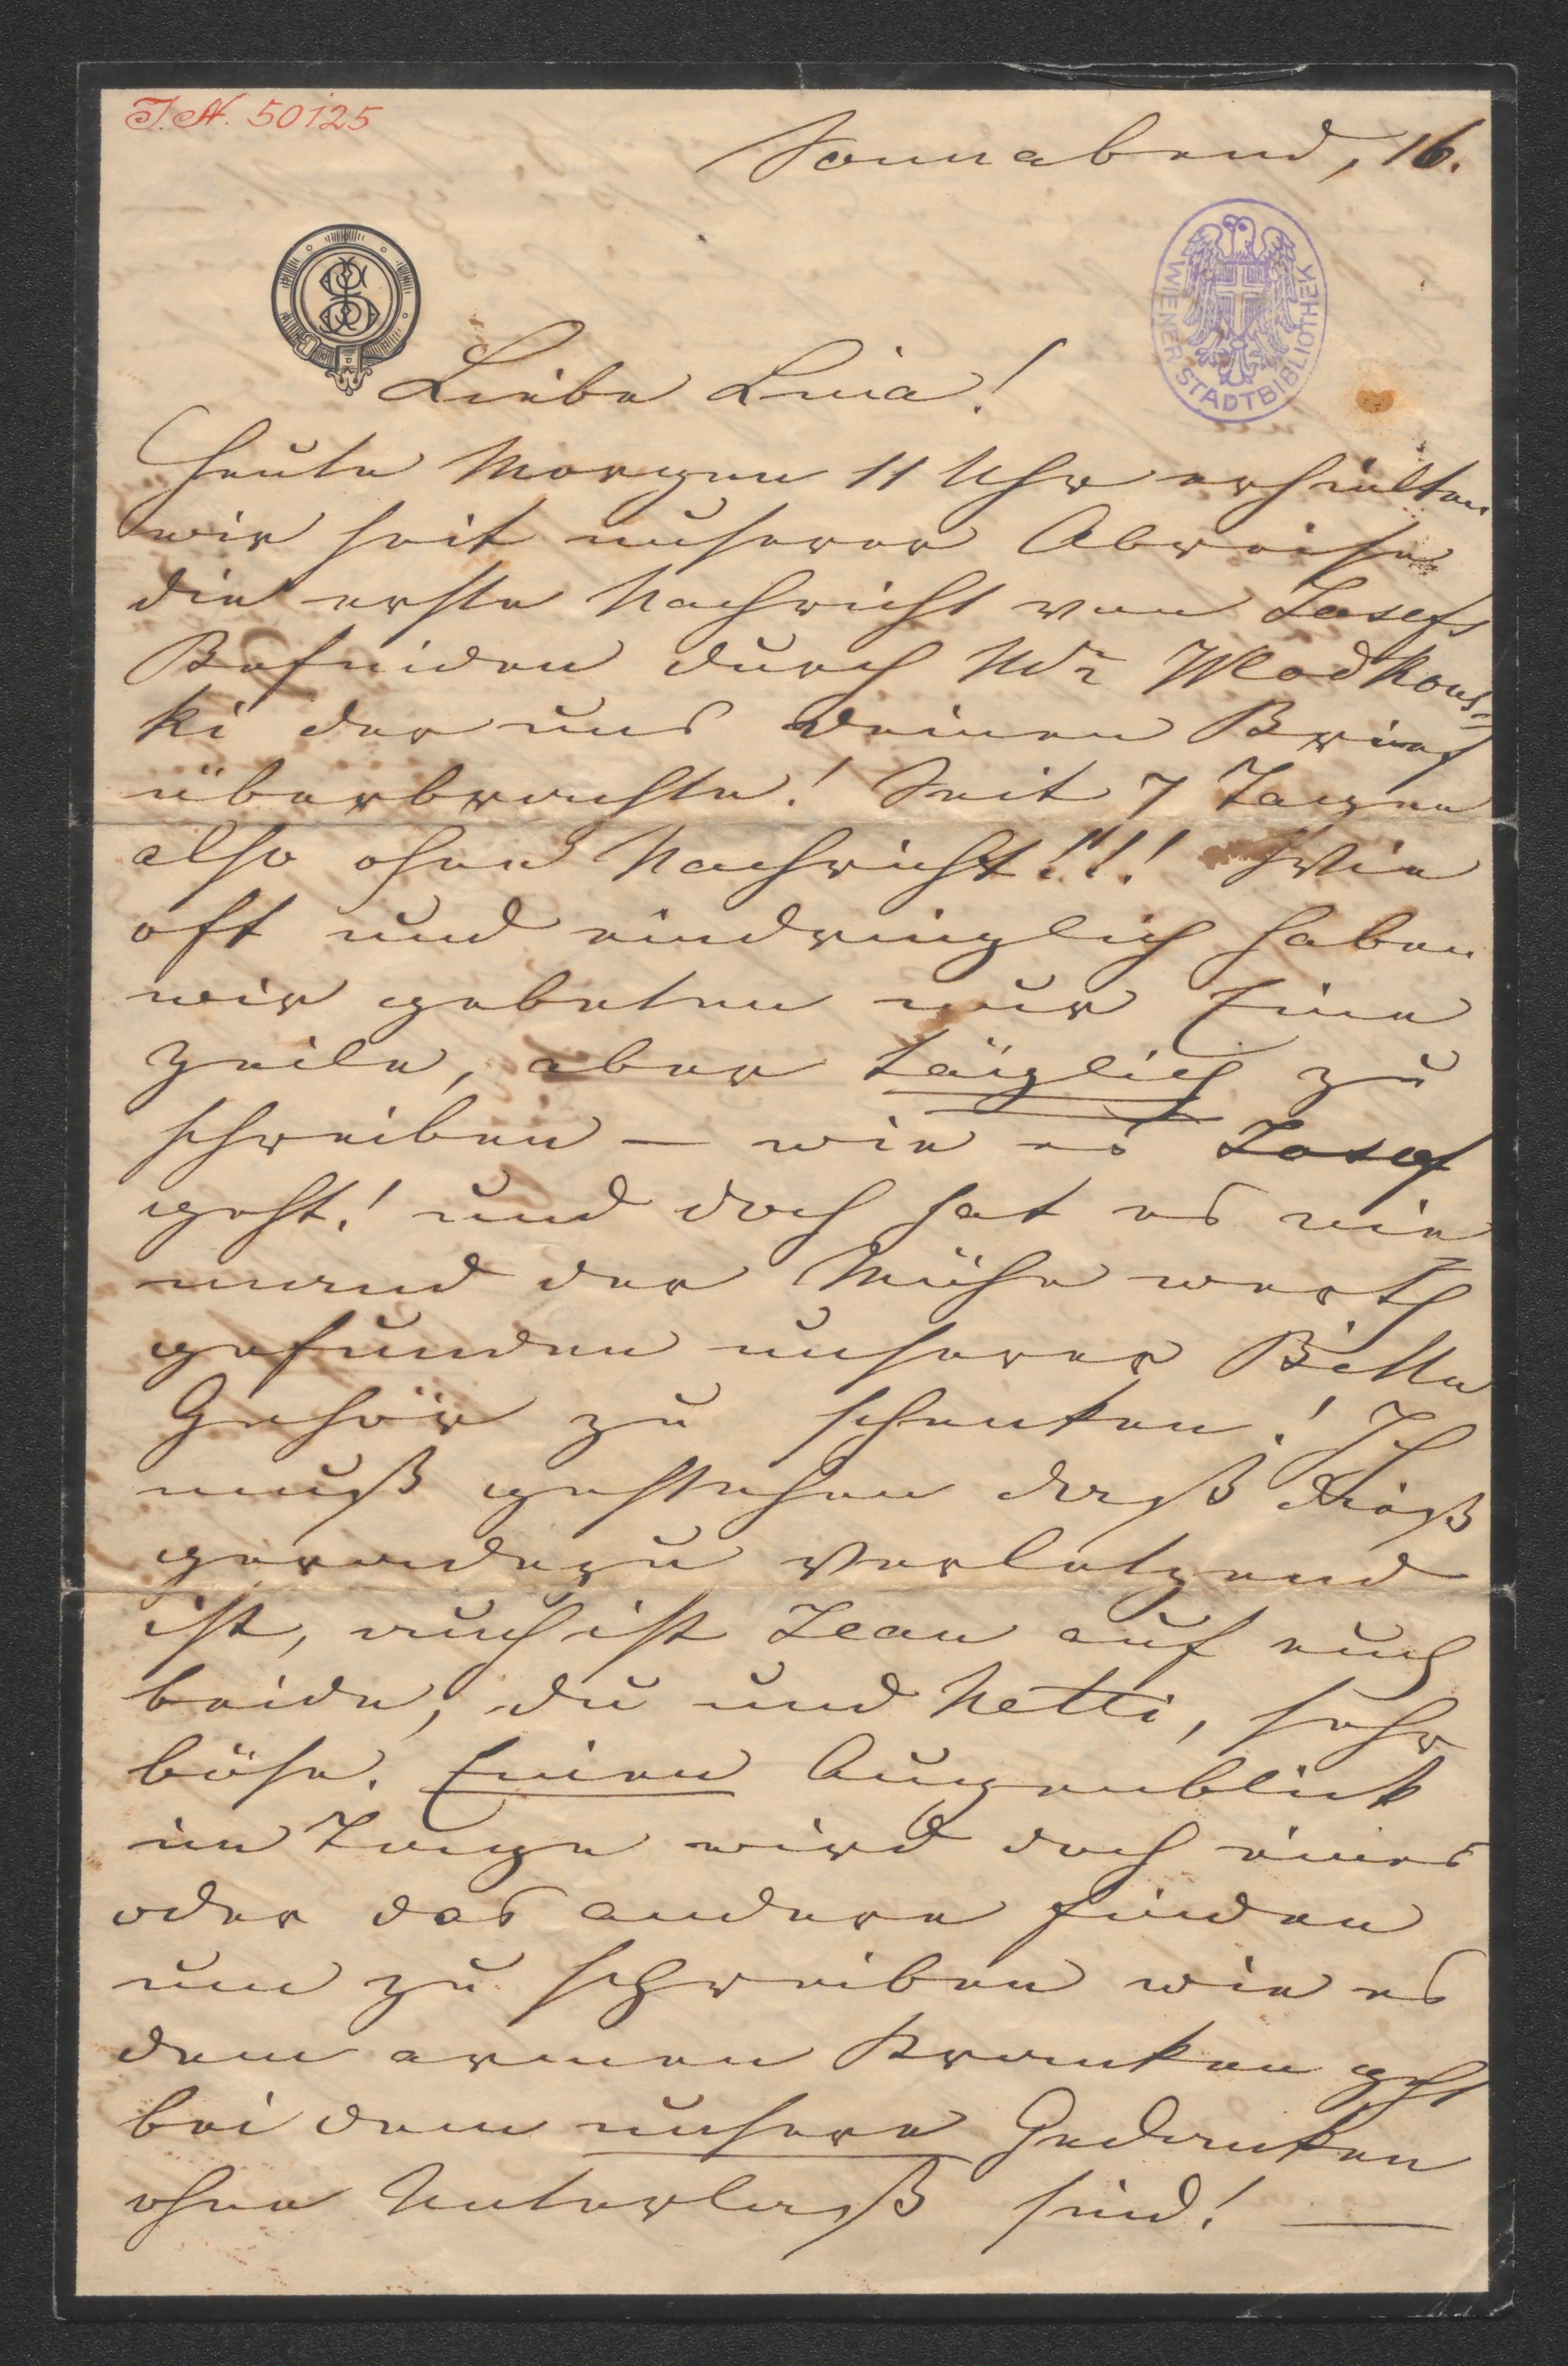 J. N. 50125
Sonnabend, 16.
WIENER STADTBIBLIOTHEK
Liebe Lina!
Heute Morgen 11 Uhr erhielten
wir seit unserer Abreise
die erste Nachricht von Josefs
Befinden durch
ki der uns deinen Brief
überbrachte! Seit 7 Tagen
also ohne Nachricht!!! Wie
oft und eindringlich haben
wir gebeten nur Eine
Zeile, aber täglich zu
schreiben – wie es Josef
geht! und doch hat es nie
mand der Mühe werth
gefunden unserer Bitte
Gehör zu schenken! Ich
muß gestehen daß dieß
geradezu verletzend
ist, auch ist Jean auf euch
beide, du und Netti, sehr
böse. Einen Augenblick
im Tage wird doch eines
oder das andere finden
um zu schreiben wie es
dem armen Kranken geht
bei dem unsere Gedanken
ohne Unterlaß sind! —